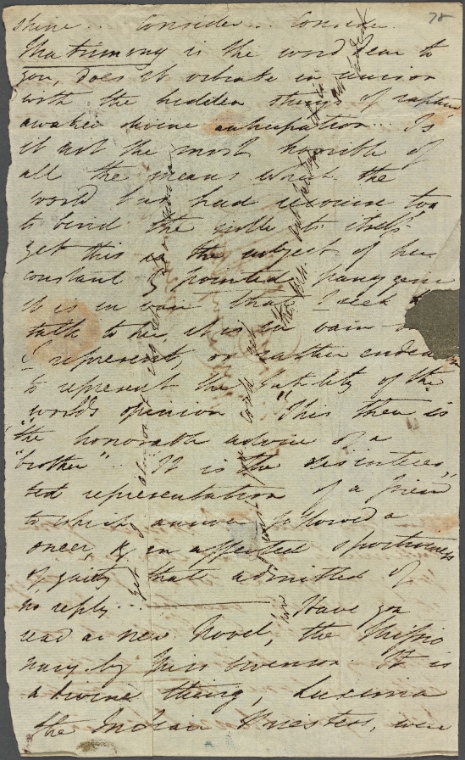 78
shine .. Consider .. Consider
Matrimony is the word dear to
you, does it vibrate in unison
with the hidden strings of rapture
awaken divine anticipation .. Is
it not the most horrible of
all the means which the
world has had recourse too
to bind the noble to itself.
yet this is the subject of her
constant & pointed panygeric
It is in vain that I seek to
talk to her, it is in vain
I represent, or rather endeavor
to represent the futility of the
worlds opinion "This then is
"the honorable advice of a
"brother" .. It is the desinteres-
ted representation of a friend
to which answer followed a
sneer, & an affected sportiveness
of gaiety that admitted of
no reply .. Have you
read a new Novel, the Missio
nary by Miss Owenson It is
a divine thing, Luxima
the Indian Priestess, were